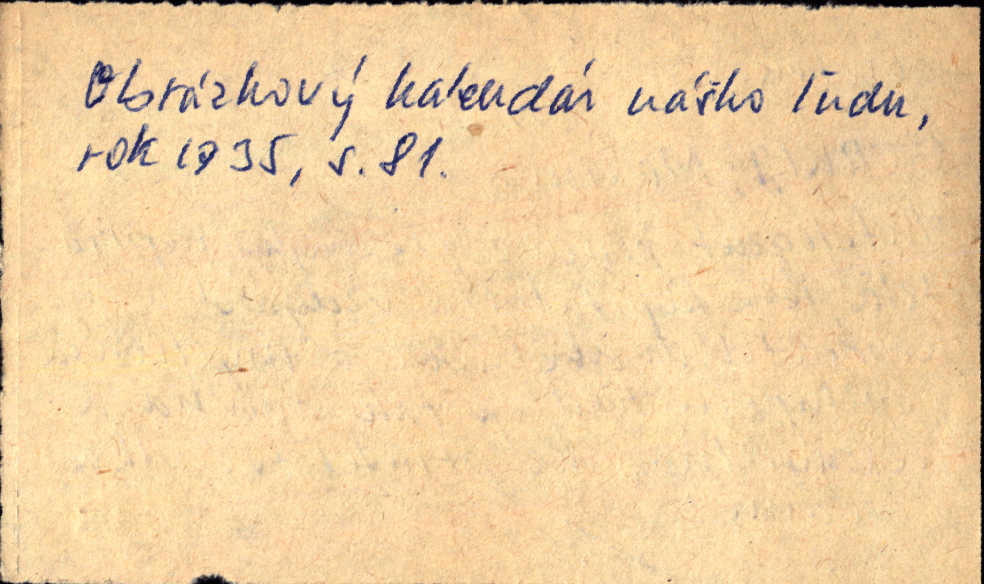 Obrázkový kalendár nášho ľudu,
rok 1935, s. 81.